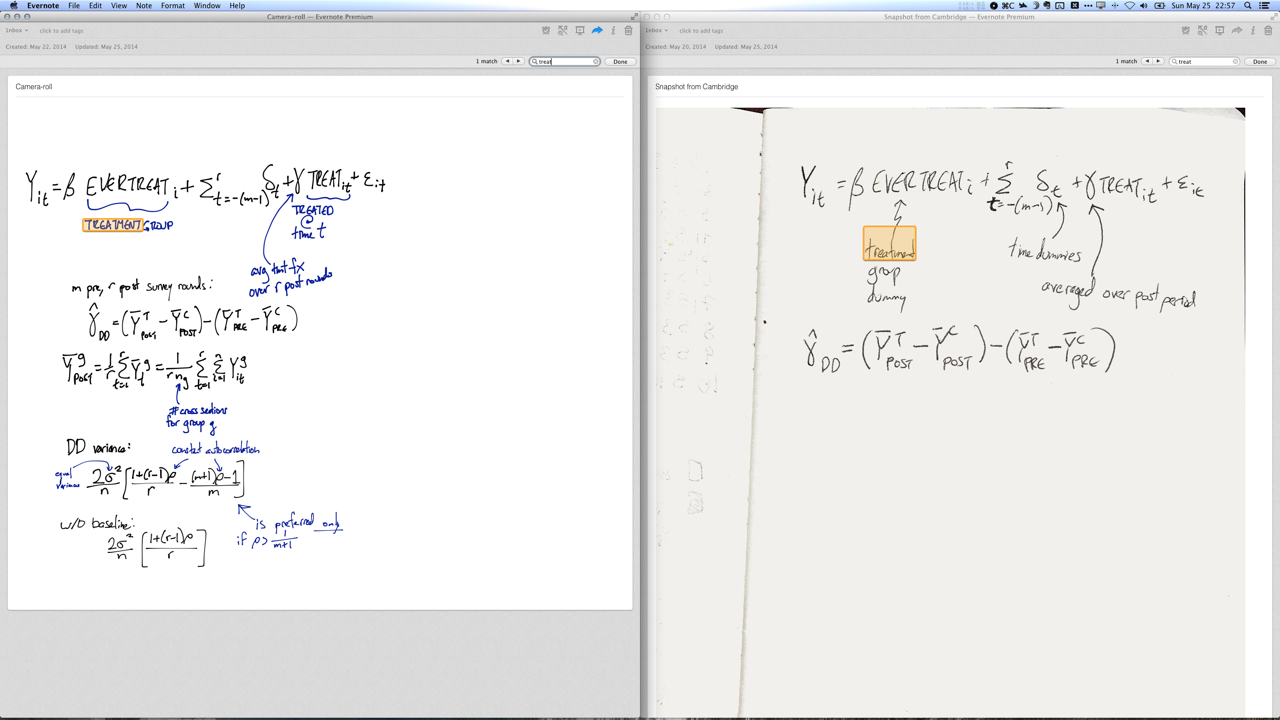 Evernote File Edit View Note Format Window Help
Sun May 25 22:57
Camera-roll — Evernote Premium
Inbox click to add tags
Created: May 22, 2014 Updated: May 25, 2014
1 match treat Done
Camera-roll
Y_it = β EVERTREAT_i + Σ^r_{t=-(m-1)} δ_t + γ TREAT_it + ε_it
TREATMENT GROUP
TREATED
@
time t
avg tmt fx
over r post rounds
m pre, r post survey rounds:
γ̂_DD = (Ȳ^T_POST − Ȳ^C_POST) − (Ȳ^T_PRE − Ȳ^C_PRE)
Ȳ^g_POST = 1/r Σ^r_{t=1} Ȳ^g_t = 1/(r n_g) Σ^r_{t=1} Σ^n_{i=1} Y^g_it
# cross sections
for group g
DD variance:
constant autocorrelation
equal
variance
2σ²/n [(1+(r-1)ρ)/r − ((m+1)ρ-1)/m]
w/o baseline:
2σ²/n [(1+(r-1)ρ)/r]
is preferred only
if ρ > 1/(m+1)
Snapshot from Cambridge — Evernote Premium
Inbox click to add tags
Created: May 20, 2014 Updated: May 25, 2014
1 match treat Done
Snapshot from Cambridge
Y_it = β EVERTREAT_i + Σ^r_{t=-(m-1)} δ_t + γ TREAT_it + ε_it
treatment
group
dummy
time dummies
averaged over post period
γ̂_DD = (Ȳ^T_POST − Ȳ^C_POST) − (Ȳ^T_PRE − Ȳ^C_PRE)